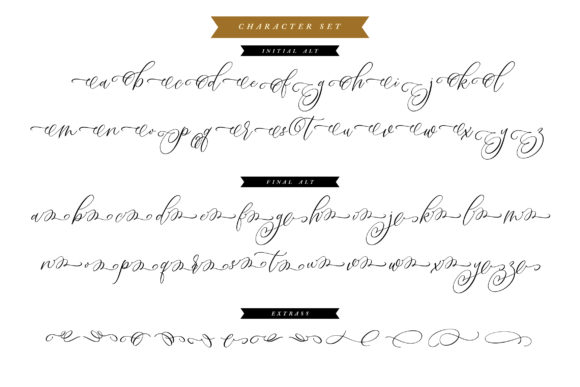 CHARACTER SET
INITIAL ALT
a b c d e f g h i j k l
m n o p q r s t u v w x y z
FINAL ALT
a b c d e f g h i j k l m
n o p q r s t u v w x y z
EXTRASS